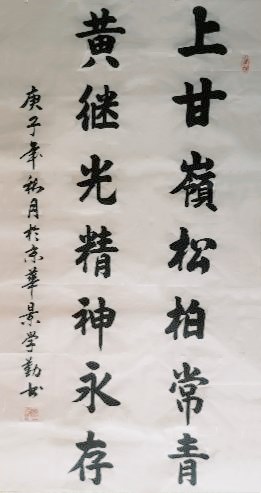 上甘嶺松柏常青
黄继光精神永存
庚子年秋月於京華景学勤书